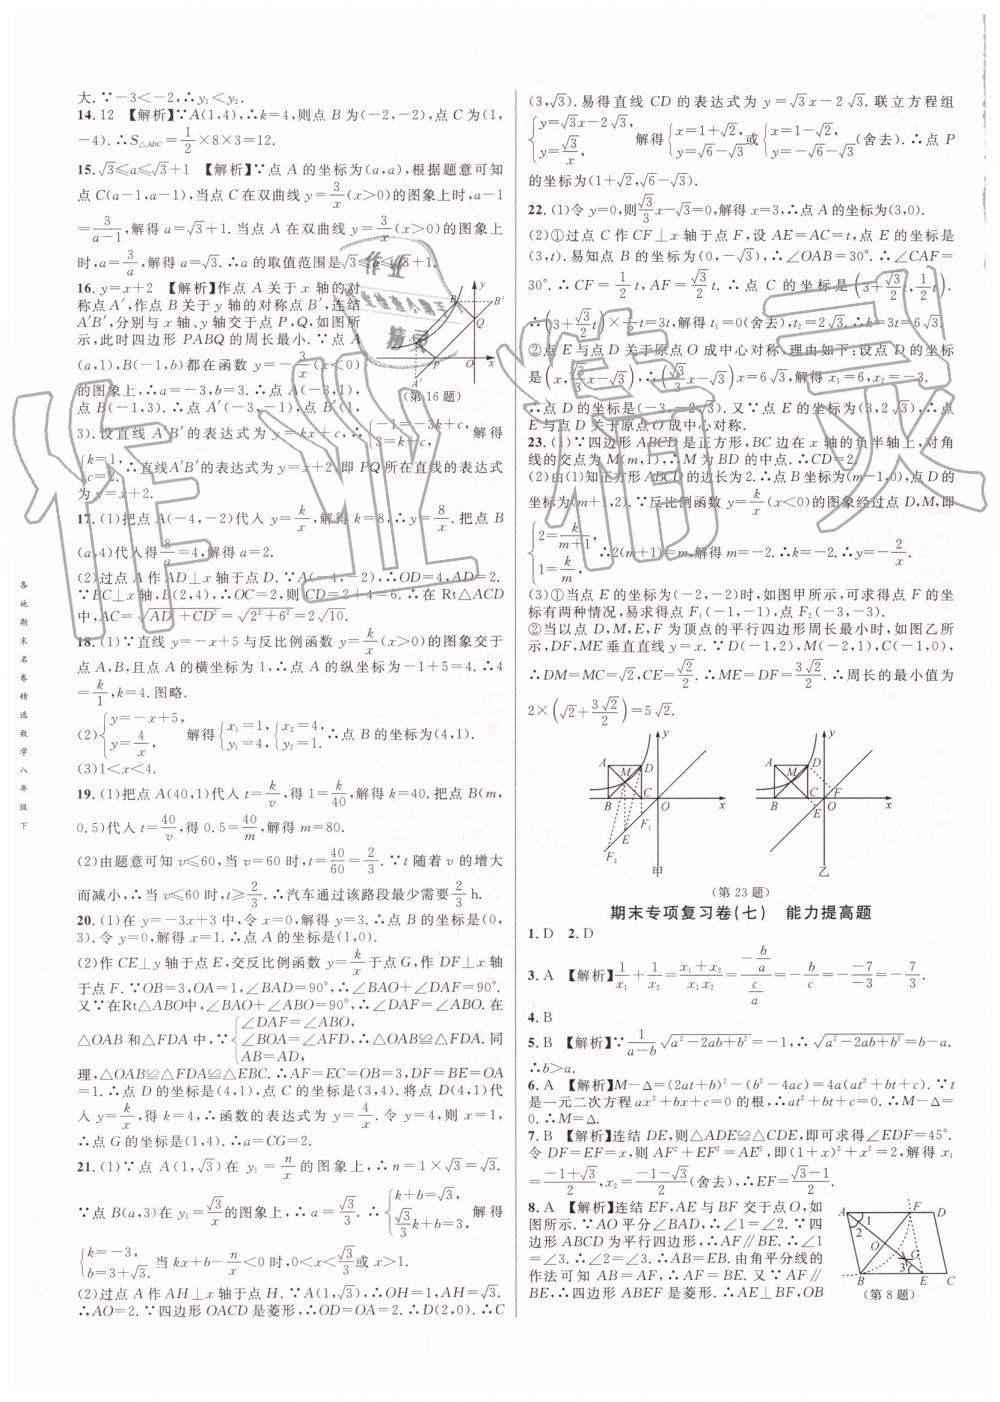 大.∵-3<-2,∴y₁<y₂.
14. 12 【解析】∵A(1,4),∴k=4,则点B为(-2,-2),点C为(1,
-4).∴S△ABC=1/2×8×3=12.
15. √3≤a≤√3+1 【解析】∵点A的坐标为(a,a),根据题意可知
点C(a-1,a-1),当点C在双曲线y=3/x(x>0)的图象上时,a-1
=3/(a-1),解得a=√3+1.当点A在双曲线y=3/x(x>0)的图象上
时,a=3/a,解得a=√3.∴a的取值范围是√3≤a≤√3+1.
16. y=x+2 【解析】作点A关于x轴的对
称点A′,作点B关于y轴的对称点B′,连结
A′B′,分别与x轴、y轴交于点P,Q,如图所
示,此时四边形PABQ的周长最小.∵点A
(a,1),B(-1,b)都在函数y=-3/x(x<0)
的图象上,∴a=-3,b=3.∴点A(-3,1),
点B(-1,3).∴点A′(-3,-1),点B′(1,
3).设直线A′B′的表达式为y=kx+c,∴{-1=-3k+c, 3=k+c, 解得
{k=1, c=2. ∴直线A′B′的表达式为y=x+2,即PQ所在直线的表达式
为y=x+2.
(第16题)
17. (1)把点A(-4,-2)代入y=k/x,解得k=8,∴y=8/x.把点B
(a,4)代入得8/a=4,解得a=2.
(2)过点A作AD⊥x轴于点D.∵A(-4,-2),∴OD=4,AD=2.
∵BC⊥x轴,B(2,4),∴OC=2,则CD=2+4=6.∴在Rt△ACD
中,AC=√(AD²+CD²)=√(2²+6²)=2√10.
18. (1)∵直线y=-x+5与反比例函数y=k/x(x>0)的图象交于
点A,B,且点A的横坐标为1,∴点A的纵坐标为-1+5=4.∴4
=k/1,k=4.图略.
(2){y=-x+5, y=4/x, 解得{x₁=1, y₁=4, {x₂=4, y₂=1, ∴点B的坐标为(4,1).
(3)1<x<4.
19. (1)把点A(40,1)代入t=k/v,得1=k/40,解得k=40.把点B(m,
0.5)代入t=40/v,得0.5=40/m,解得m=80.
(2)由题意可知v≤60,当v=60时,t=40/60=2/3.∵t随着v的增大
而减小,∴当v≤60时,t≥2/3.∴汽车通过该路段最少需要2/3 h.
20. (1)在y=-3x+3中,令x=0,解得y=3.∴点B的坐标是(0,
3).令y=0,解得x=1.∴点A的坐标是(1,0).
(2)作CE⊥y轴于点E,交反比例函数y=k/x于点G,作DF⊥x轴
于点F.∵OB=3,OA=1,∠BAD=90°,∴∠BAO+∠DAF=90°.
又∵在Rt△ABO中,∠BAO+∠ABO=90°,∴∠DAF=∠ABO.在
△OAB和△FDA中,∵{∠DAF=∠ABO, ∠BOA=∠AFD, AB=AD, ∴△OAB≌△FDA.同
理,△OAB≌△FDA≌△EBC.∴AF=EC=OB=3,DF=BE=OA
=1.∴点D的坐标是(4,1),点C的坐标是(3,4).将点D(4,1)代
入y=k/x,得k=4,∴函数的表达式为y=4/x.令y=4,则x=1,
∴点G的坐标是(1,4).∴a=CG=2.
21. (1)∵点A(1,√3)在y₁=n/x的图象上,∴n=1×√3=√3.
∵点B(a,3)在y₁=√3/x的图象上,∴a=√3/3.∴{k+b=√3, √3/3k+b=3, 解得
{k=-3, b=3+√3. 当kx+b-n/x<0时,0<x<√3/3或x>1.
(2)过点A作AH⊥x轴于点H.∵A(1,√3),∴OH=1,AH=√3.
∴AO=2.∵四边形OACD是菱形,∴OD=OA=2.∴D(2,0).∴C
(3,√3).易得直线CD的表达式为y=√3x-2√3.联立方程组
{y=√3x-2√3, y=√3/x, 解得{x=1+√2, y=√6-√3或{x=1-√2, y=-√6-√3(舍去).∴点P
的坐标为(1+√2,√6-√3).
22. (1)令y=0,则√3/3x-√3=0,解得x=3,∴点A的坐标为(3,0).
(2)①过点C作CF⊥x轴于点F,设AE=AC=t,点E的坐标是
(3,t).易知点B为(0,-√3),∴∠OAB=30°.∴∠CAF=
30°.∴CF=1/2t,AF=√3/2t.∴点C的坐标是(3+√3/2t,1/2t).
∴(3+√3/2t)×1/2t=3t,解得t₁=0(舍去),t₂=2√3.∴k=3t=6√3.
②点E与点D关于原点O成中心对称,理由如下:设点D的坐标
是(x,√3/3x-√3),∴x(√3/3x-√3)=6√3,解得x₁=6,x₂=-3.
∴点D的坐标是(-3,-2√3).又∵点E的坐标为(3,2√3),∴点
E与点D关于原点O成中心对称.
23. (1)∵四边形ABCD是正方形,BC边在x轴的负半轴上,对角
线的交点为M(m,1),∴M为BD的中点.∴CD=2.
(2)由(1)知正方形ABCD的边长为2.∴点B为(m-1,0),点D的
坐标为(m+1,2).∵反比例函数y=k/x(x<0)的图象经过点D,M,即
{2=k/(m+1), 1=k/m, ∴2(m+1)=m.解得m=-2.∴k=-2,∴y=-2/x.
(3)①当点E的坐标为(-2,-2)时,如图甲所示,可求得点F的坐
标有两种情况,易求得点F₁(-1,-1),点F₂(-3,-3).
②当以点D,M,E,F为顶点的平行四边形周长最小时,如图乙所
示,DF,ME垂直直线y=x.∵D(-1,2),M(-2,1),C(-1,0),
∴DM=MC=√2,CE=√2/2.∴ME=DF=3√2/2.∴周长的最小值为
2×(√2+3√2/2)=5√2.
甲 乙
(第23题)
期末专项复习卷(七) 能力提高题
1. D 2. D
3. A 【解析】1/x₁+1/x₂=(x₁+x₂)/(x₁x₂)=(-b/a)/(c/a)=-b/c=-(-7)/(-3)=-7/3.
4. B
5. B 【解析】∵1/(a-b)√(a²-2ab+b²)=-1,∴√(a²-2ab+b²)=b-a.
∴b>a.
6. A 【解析】M-Δ=(2at+b)²-(b²-4ac)=4a(at²+bt+c).∵t
是一元二次方程ax²+bx+c=0的根,∴at²+bt+c=0.∴M-Δ=
0.∴M=Δ.
7. B 【解析】连结DE,则△ADE≌△CDE,即可求得∠EDF=45°.
令DF=EF=x,则AF²+EF²=AE²,即(1+x)²+x²=2,解得x₁
=(-1+√3)/2,x₂=(-1-√3)/2(舍去),∴EF=(√3-1)/2.
8. A 【解析】连结EF,AE与BF交于点O,如
图所示.∵AO平分∠BAD,∴∠1=∠2.∵四
边形ABCD为平行四边形,∴AF∥BE.∴∠1
=∠3.∴∠2=∠3.∴AB=EB.由角平分线的
作法可知AB=AF,∴AF=BE.又∵AF∥
BE,∴四边形ABEF是菱形.∴AE⊥BF,OB
(第8题)
各地期末名卷精选数学八年级下